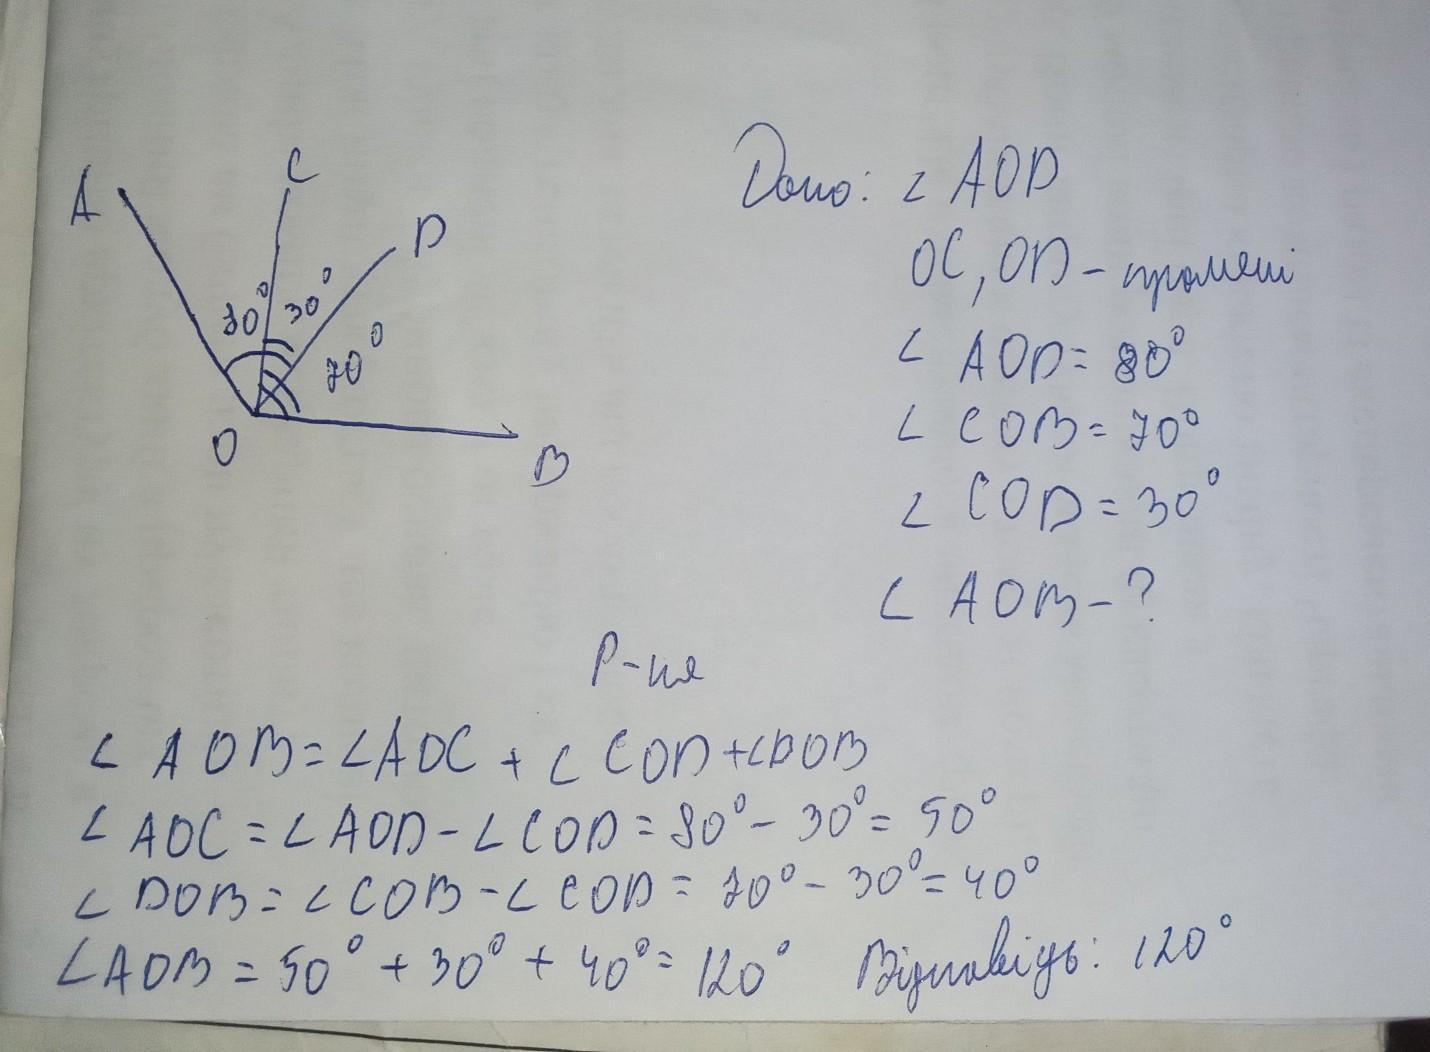 A
C
D
80° 30°
70°
O
B
Дано: ∠ AOD
OC, OD - промені
∠ AOD = 80°
∠ COB = 70°
∠ COD = 30°
∠ AOB - ?
Р-ня
∠ AOB = ∠AOC + ∠ COD + ∠DOB
∠ AOC = ∠ AOD - ∠ COD = 80° - 30° = 50°
∠ DOB = ∠ COB - ∠ COD = 70° - 30° = 40°
∠AOB = 50° + 30° + 40° = 120° Відповідь: 120°